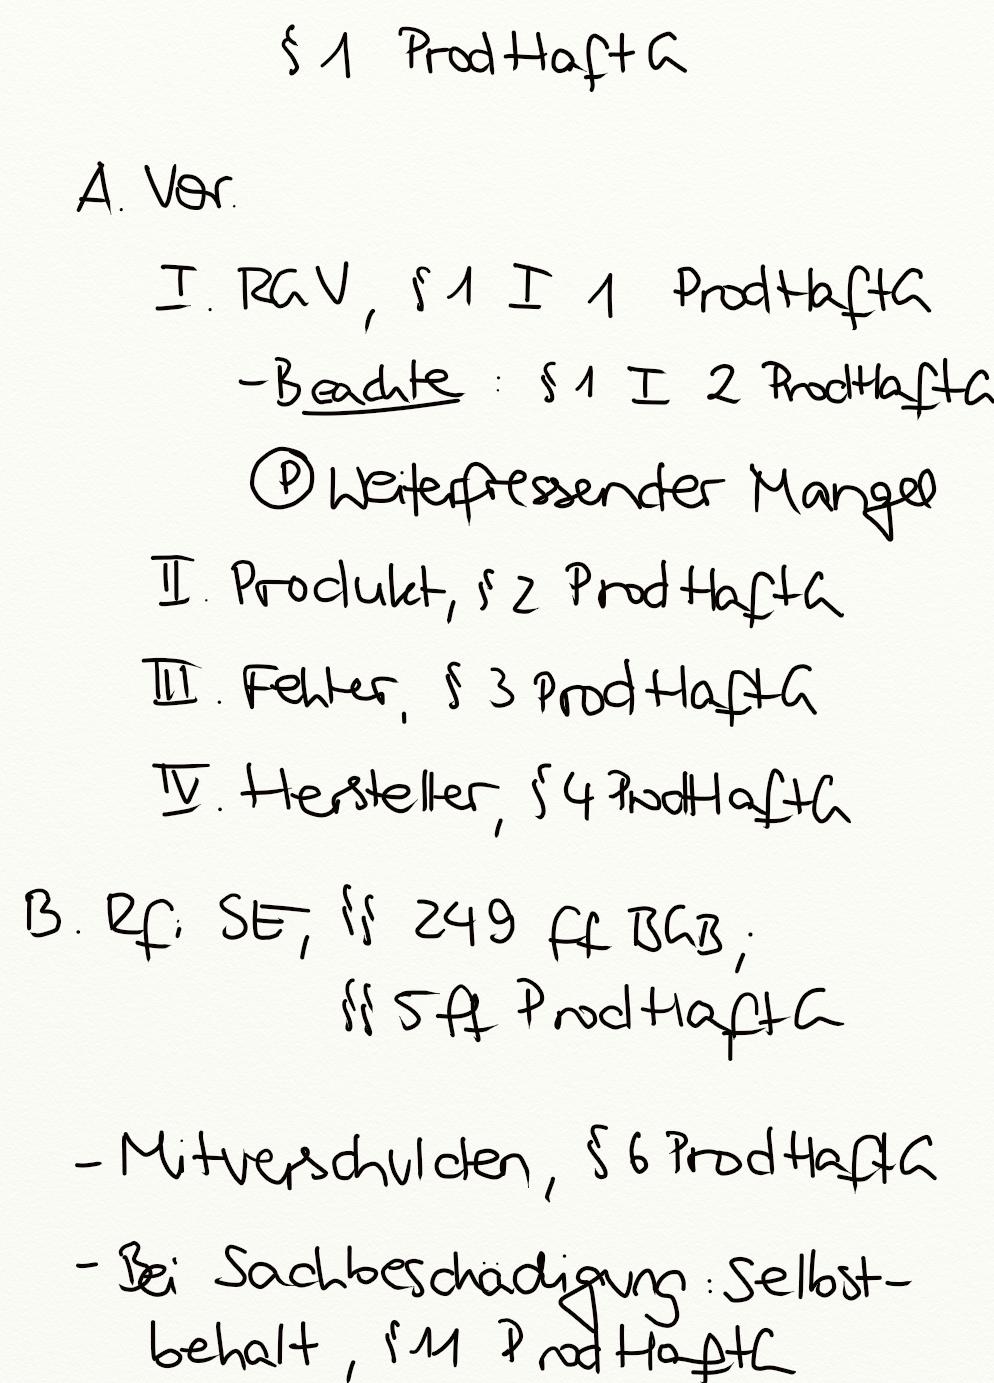 § 1 ProdHaftG
A. Vor.
I. RGV, § 1 I 1 ProdHaftG
- Beachte : § 1 I 2 ProdHaftG
Ⓟ Weiterfressender Mangel
II. Produkt, § 2 ProdHaftG
III. Fehler, § 3 ProdHaftG
IV. Hersteller, § 4 ProdHaftG
B. Rf: SE, §§ 249 ff BGB;
§§ 5 ff ProdHaftG
- Mitverschulden, § 6 ProdHaftG
- Bei Sachbeschädigung: Selbst-
behalt, § 11 ProdHaftG